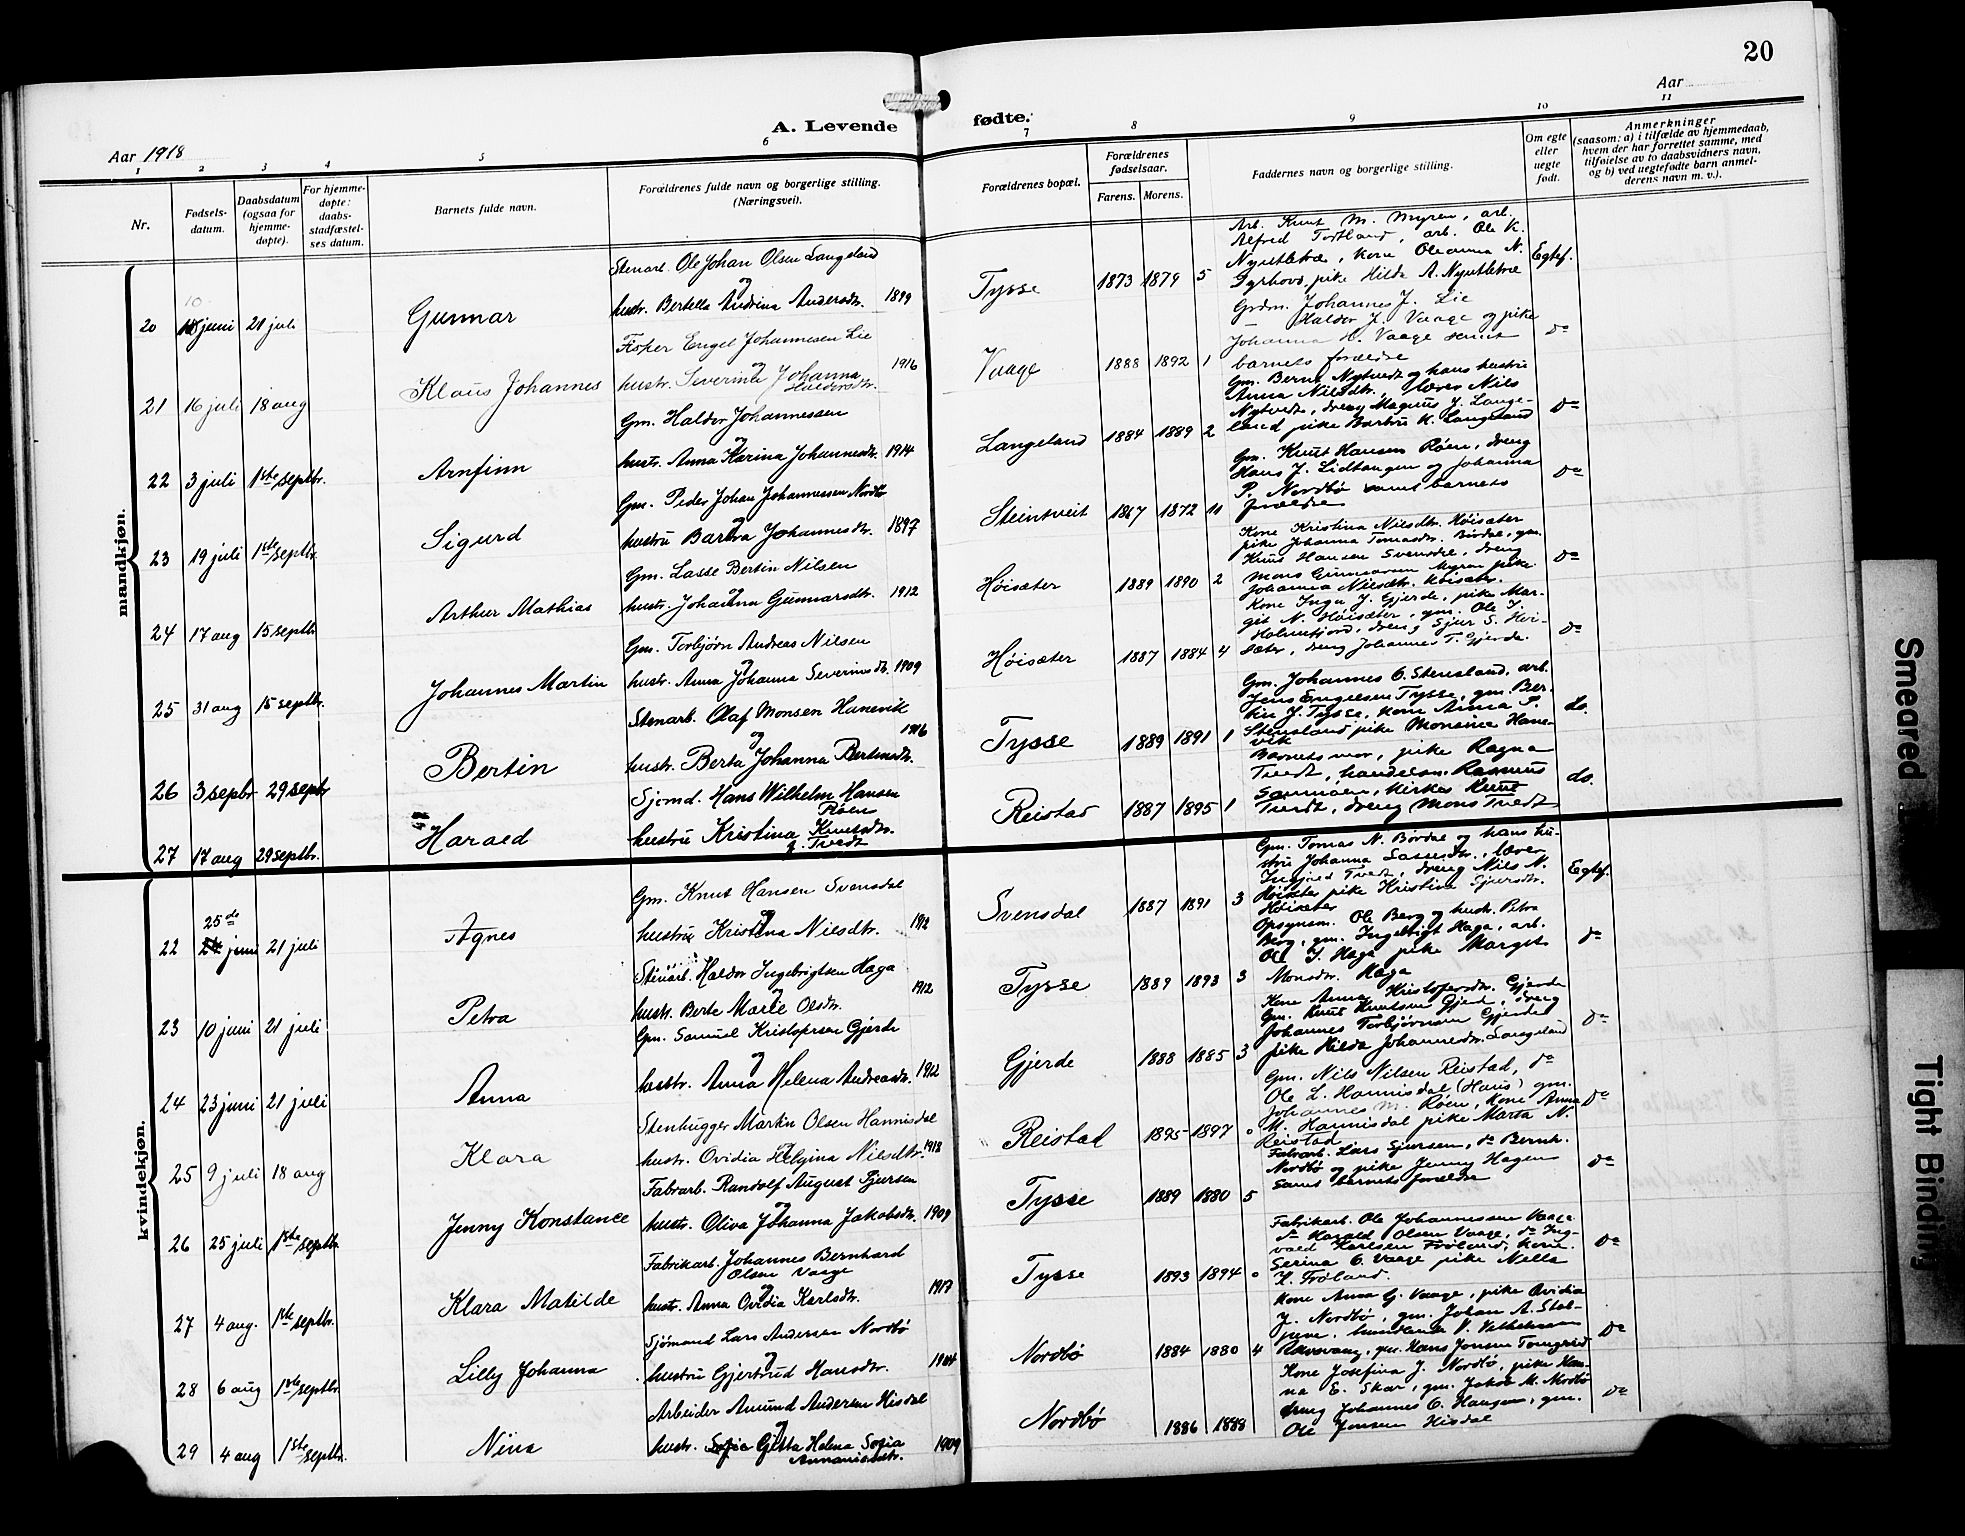 20
Aar 1918
A. Levende
fødte.
Aar
1
2
3
4
5
6
7
8
9
10
11
Nr.
Fødsels-
datum.
Daabsdatum
(ogsaa for
hjemme-
døpte).
For hjemme-
døpte:
daabs-
stadfæstel-
ses datum.
Barnets fulde navn.
Forældrenes fulde navn og borgerlige stilling.
(Næringsvei).
Forældrenes bopæl.
Forældrenes
fødselsaar.
Farens.
Morens.
Faddernes navn og borgerlige stilling.
Om egte
eller
uegte
født.
Anmerkninger
(saasom: a) i tilfælde av hjemmedaab,
hvem der har forrettet samme, med
tilføielse av to daabsvidners navn,
og b) ved uegtefødte barn anmel-
derens navn m. v.).
mandkjøn.
20 juni 21 juli
Gunnar
Stenarb. Ole Johan Olsen Langeland
og
hustr. Bertella Andrina Andersdtr. 1899
Tysse 1873 1879 5
Arb. Knut M. Myren, arb.
Alfred Tortland, arb. Ole K.
Nygutletræ, kone Oleanna N.
Dyrhovd, pike Hilda A. Nygutletræ
Egtef.
21 16 juli 18 aug
Klaus Johannes
Fisker Engel Johannesen Lie
og
hustr. Severine Johanna
Haldorsdtr. 1916
Vaage 1888 1892 1
Grdm. Johannes J. Lie
Haldor J. Vaage og pike
Johanna H. Vaage samt
barnets forældre
do
22 3 juli 1ste septbr.
Arnfinn
Gm. Haldor Johannessen
og
hustr. Anna Karina Johannesdtr. 1914
Langeland 1884 1889 2
Gm. Bernt Nytvedt og hans hustru
Anna Nilsdtr., lærer Nils
Nytvedt, dreng Magnus J. Lange-
land pike Barbru K. Langeland
do
23 19 juli 1ste septbr.
Sigurd
Gm. Peder Johan Johannessen Nordbø
og
hustru Barbra Johannesdtr. 1897
Steintveit 1867 1872 11
Gm. Knut Hansen Røen, dreng
Hans J. Lidtangen og Johanna
P. Nordbø samt barnets
forældre
do
24 17 aug 15 septbr
Arthur Mathias
Gm. Lasse Bertin Nilsen
og
hustr. Johanna Gunnarsdtr. 1912
Høisæter 1889 1890 2
Kone Kristina Nilsdtr. Høisæter
pike Johanna Tomasdtr. Børdal, gm.
Knut Hansen Svensdal, dreng
Mons Gunnarsen Myren pike
Johanna Nilsdtr. Høisæter.
do
25 31 aug 15 septbr.
Johannes Martin
Gm. Torbjørn Andreas Nilsen
og
hustr. Anna Johanna Severinsdtr. 1909
Høisæter 1887 1884 4
Kone Inga J. Gjerde, pike Mar-
git N. Høisæter, gm. Ole J.
Holmefjord, dreng Sjur S. Høi-
sæter, dreng Johannes T. Gjerde.
do
26 3 septbr 29 septbr
Bertin
Stenarb. Olaf Monsen Hanevik
og
hustr. Berta Johanna Bertinsdtr. 1916
Tysse 1889 1891 1
Gm. Johannes O. Stensland, arb.
Jens Engelsen Tysse, gm. Ber-
tin J. Tysse, kone Anna P.
Stensland pike Monsine Hane-
vik
do.
27 17 aug 29 septbr.
Harald
Sjømd. Hans Wilhelm Hansen
Røen
hustru Kristina Knutsdtr.
f. Tvedt
Reistad 1887 1895 1
Barnets mor, pike Ragna
Tvedt, handelsm. Rasmus
Samnøen, kirkes. Knut
Tvedt, dreng Mons Tvedt
do.
kvindekjøn.
22 25de juni 21 juli
Agnes
Gm. Knut Hansen Svensdal
og
hustru Kristina Nilsdtr. 1912
Svensdal 1887 1891 3
Gm. Tomas N. Børdal og hans hu-
stru Johanna Lassesdtr., lærer
Ingvald Tvedt, dreng Nils N.
Høisæter pike Kristina Sjursdtr.
Høisæter
Egtef.
23 10 juni 21 juli
Petra
Stenarb. Haldor Ingebrigtsen Haga
og
hustr. Berte Marie Olsdtr. 1912
Tysse 1889 1893 3
Opsynsm. Ole Berg og hustr. Petra
Berg, gm. Ingebrigt Haga, arb.
Ole J. Haga pike Margit
Monsdtr. Haga
do
24 23 juni 21 juli
Anna
Gm. Samuel Kristofersen Gjerde
og
hustr. Anna Helena Andreasdtr. 1912
Gjerde 1888 1885 3
Kone Anna Kristofersdtr. Gjerde
Gm. Knut Knutsen Gjerde, dreng
Johannes Torbjørnsen Gjerde
pike Hilda Johannesdtr. Langeland
do
25 9 juli 18 aug
Klara
Stenhugger Martin Olsen Hannisdal
og
hustr. Ovidia Helgina Nilsdtr. 1918
Reistad 1895 1897 0
Gm. Nils Nilsen Reistad, do
Ole L. Hannisdal (Haus) gm.
Johannes M. Røen, kone Anna
M. Hannisdal pike Marta N.
Reistad
do
26 25 juli 1ste septbr
Jenny Konstance
Fabarb. Randolf August Sjursen
og
hustr. Oliva Johanna Jakobsdtr. 1909
Tysse 1889 1880 5
Fabarb. Lars Sjursen, do Bernh.
Nordbø og pike Jenny Hagen
samt barnets forældre
do
27 4 aug. 1ste septbr.
Klara Matilde
Fabrikarb. Johannes Bernhard
Olsen Vaage
og
hustr. Anna Ovidia Karlsdtr. 1917
Tysse 1893 1894 0
Fabrikarb. Ole Johannessen Vaage
do Harald Olsen Vaage, do Ing-
vald Karlsen Frøland, kone
Serina O. Vaage pike Nella
K. Frøland.
do
28 6 aug 1ste septbr
Lilly Johanna
Sjømand Lars Andersen Nordbø
og
hustru Gjertrud Hansdtr. 1904
Nordbø 1884 1880 4
Kone Anna G. Vaage, pike Ovidia
J. Nordbø, gm. Johan A. Stol-
Hans Jonsen
do
29 4 aug 1ste septbr.
Nina
Arbeider Amund Andersen Hisdal
og
hustr. Gitta Helena Sofia
Annaniasdtr. 1909
Nordbø 1886 1888
Kone Josefina J. Nordbø, pike Han-
na E. Skar, gm. Jakob M. Nordbø
dreng Johannes O. Haugen, gm.
Ole Jensen Hisdal
do
Smeared
Tight Binding